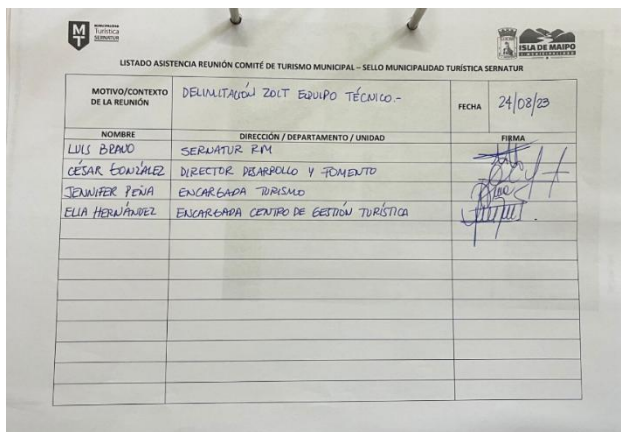 MUNICIPALIDAD
Turística
SERNATUR
ISLA DE MAIPO
MUNICIPALIDAD
LISTADO ASISTENCIA REUNIÓN COMITÉ DE TURISMO MUNICIPAL – SELLO MUNICIPALIDAD TURÍSTICA SERNATUR
MOTIVO/CONTEXTO
DE LA REUNIÓN
DELIMITACIÓN ZOIT EQUIPO TÉCNICO.-
FECHA
24/08/23
NOMBRE DIRECCIÓN / DEPARTAMENTO / UNIDAD FIRMA
LUIS BRAVO SERNATUR RM
CÉSAR GONZÁLEZ DIRECTOR DESARROLLO Y FOMENTO
JENNIFER PEÑA ENCARGADA TURISMO
ELIA HERNÁNDEZ ENCARGADA CENTRO DE GESTIÓN TURÍSTICA